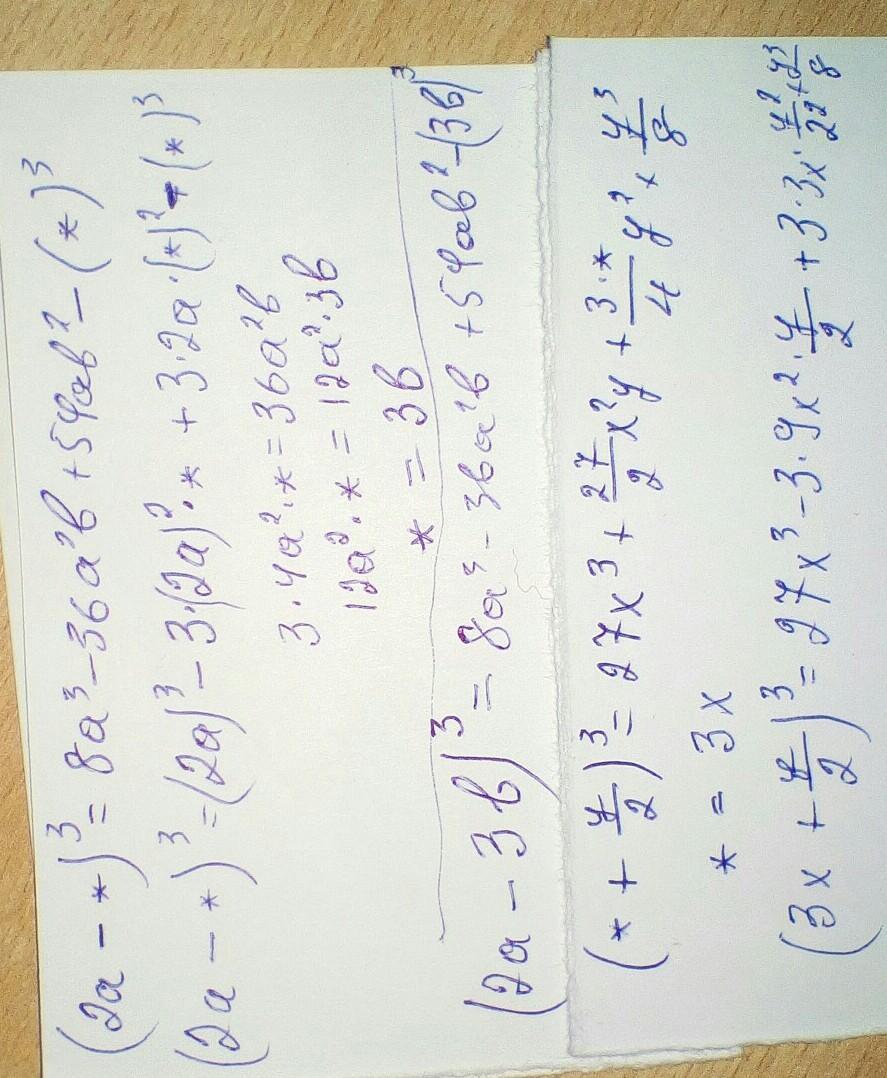 (2a - *)³ = 8a³ - 36a²b + 54ab² - (*)³
(2a - *)³ = (2a)³ - 3·(2a)²·* + 3·2a·(*)² - (*)³
3·4a²·* = 36a²b
12a²·* = 12a²·3b
* = 3b
(2a - 3b)³ = 8a³ - 36a²b + 54ab² - (3b)³
(* + y/2)³ = 27x³ + 27/2 x²y + 3·*/4 y² + y³/8
* = 3x
(3x + y/2)³ = 27x³ - 3·9x²·y/2 + 3·3x·y²/2² + y³/8